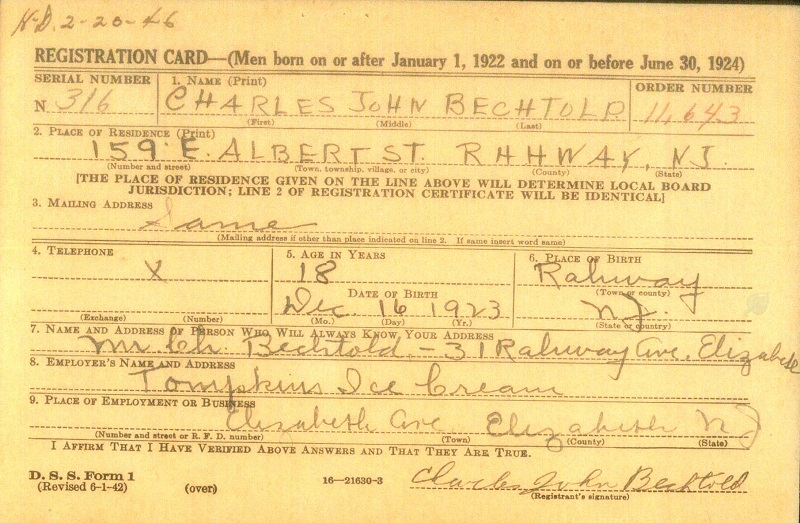 N.D. 2-20-46
REGISTRATION CARD—(Men born on or after January 1, 1922 and on or before June 30, 1924)
SERIAL NUMBER 1. NAME (Print) ORDER NUMBER
N 316 CHARLES JOHN BECHTOLD 11,643
(First) (Middle) (Last)
2. PLACE OF RESIDENCE (Print)
159 E. ALBERT ST. RAHWAY, NJ.
(Number and street) (Town, township, village, or city) (County) (State)
[THE PLACE OF RESIDENCE GIVEN ON THE LINE ABOVE WILL DETERMINE LOCAL BOARD
JURISDICTION; LINE 2 OF REGISTRATION CERTIFICATE WILL BE IDENTICAL]
3. MAILING ADDRESS
Same
(Mailing address if other than place indicated on line 2. If same insert word same)
4. TELEPHONE 5. AGE IN YEARS 6. PLACE OF BIRTH
X 18 Rahway
DATE OF BIRTH (Town or county)
Dec. 16 1923 N.J.
(Exchange) (Number) (Mo.) (Day) (Yr.) (State or country)
7. NAME AND ADDRESS OF PERSON WHO WILL ALWAYS KNOW YOUR ADDRESS
Mr. Ch. Bechtold - 31 Rahway Ave. Elizabeth
8. EMPLOYER'S NAME AND ADDRESS
Tompkins Ice Cream
9. PLACE OF EMPLOYMENT OR BUSINESS
Elizabeth Ave Elizabeth NJ
(Number and street or R. F. D. number) (Town) (County) (State)
I AFFIRM THAT I HAVE VERIFIED ABOVE ANSWERS AND THAT THEY ARE TRUE.
D. S. S. Form 1
(Revised 6-1-42) (over) 16—21630-3 Charles John Bechtold
(Registrant's signature)